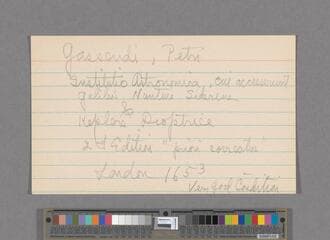 Gassendi, Petri
Institutio Astronomica, cui accesserunt
Galilei Nuntius Sidereus
&
Kepleri Dioptrice
2d Edition "priori correctior"
London 1653
Very Good Condition